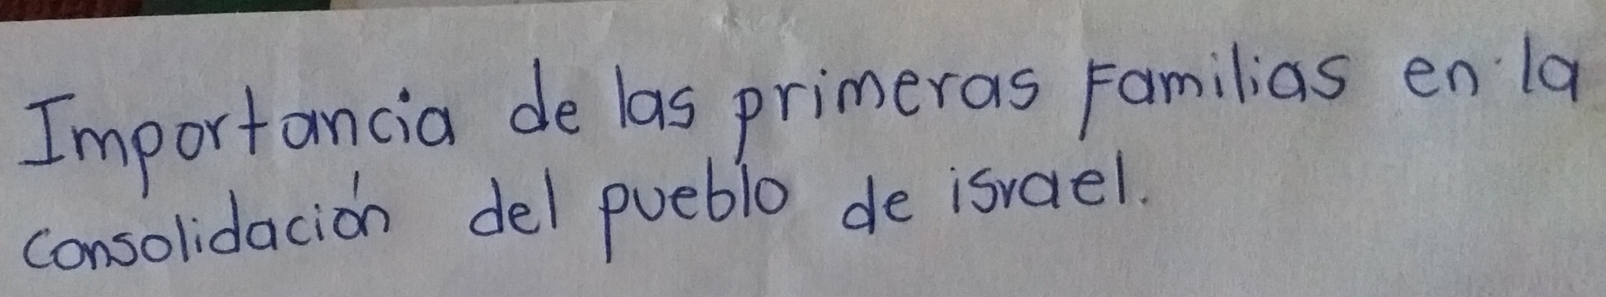 Importancia de las primeras Familias en la
consolidación del pueblo de israel.